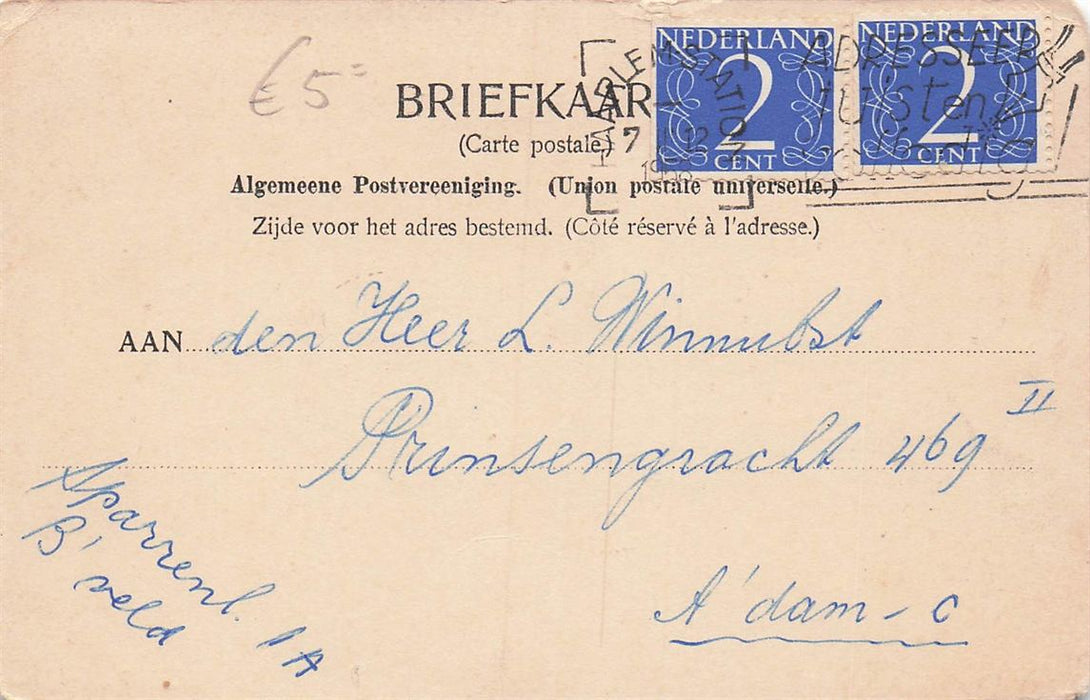 € 5=
BRIEFKAAR
(Carte postale.)
Algemeene Postvereeniging. (Union postale universelle.)
Zijde voor het adres bestemd. (Côté réservé à l'adresse.)
NEDERLAND
2
CENT
NEDERLAND
2
CENT
HAARLEM STATION
7 12
ADRESSEER
JUIST en
AAN den Heer L. Winnubst
Prinsengracht 469 II
A'dam-C
Sparrenl. 1A
B'veld